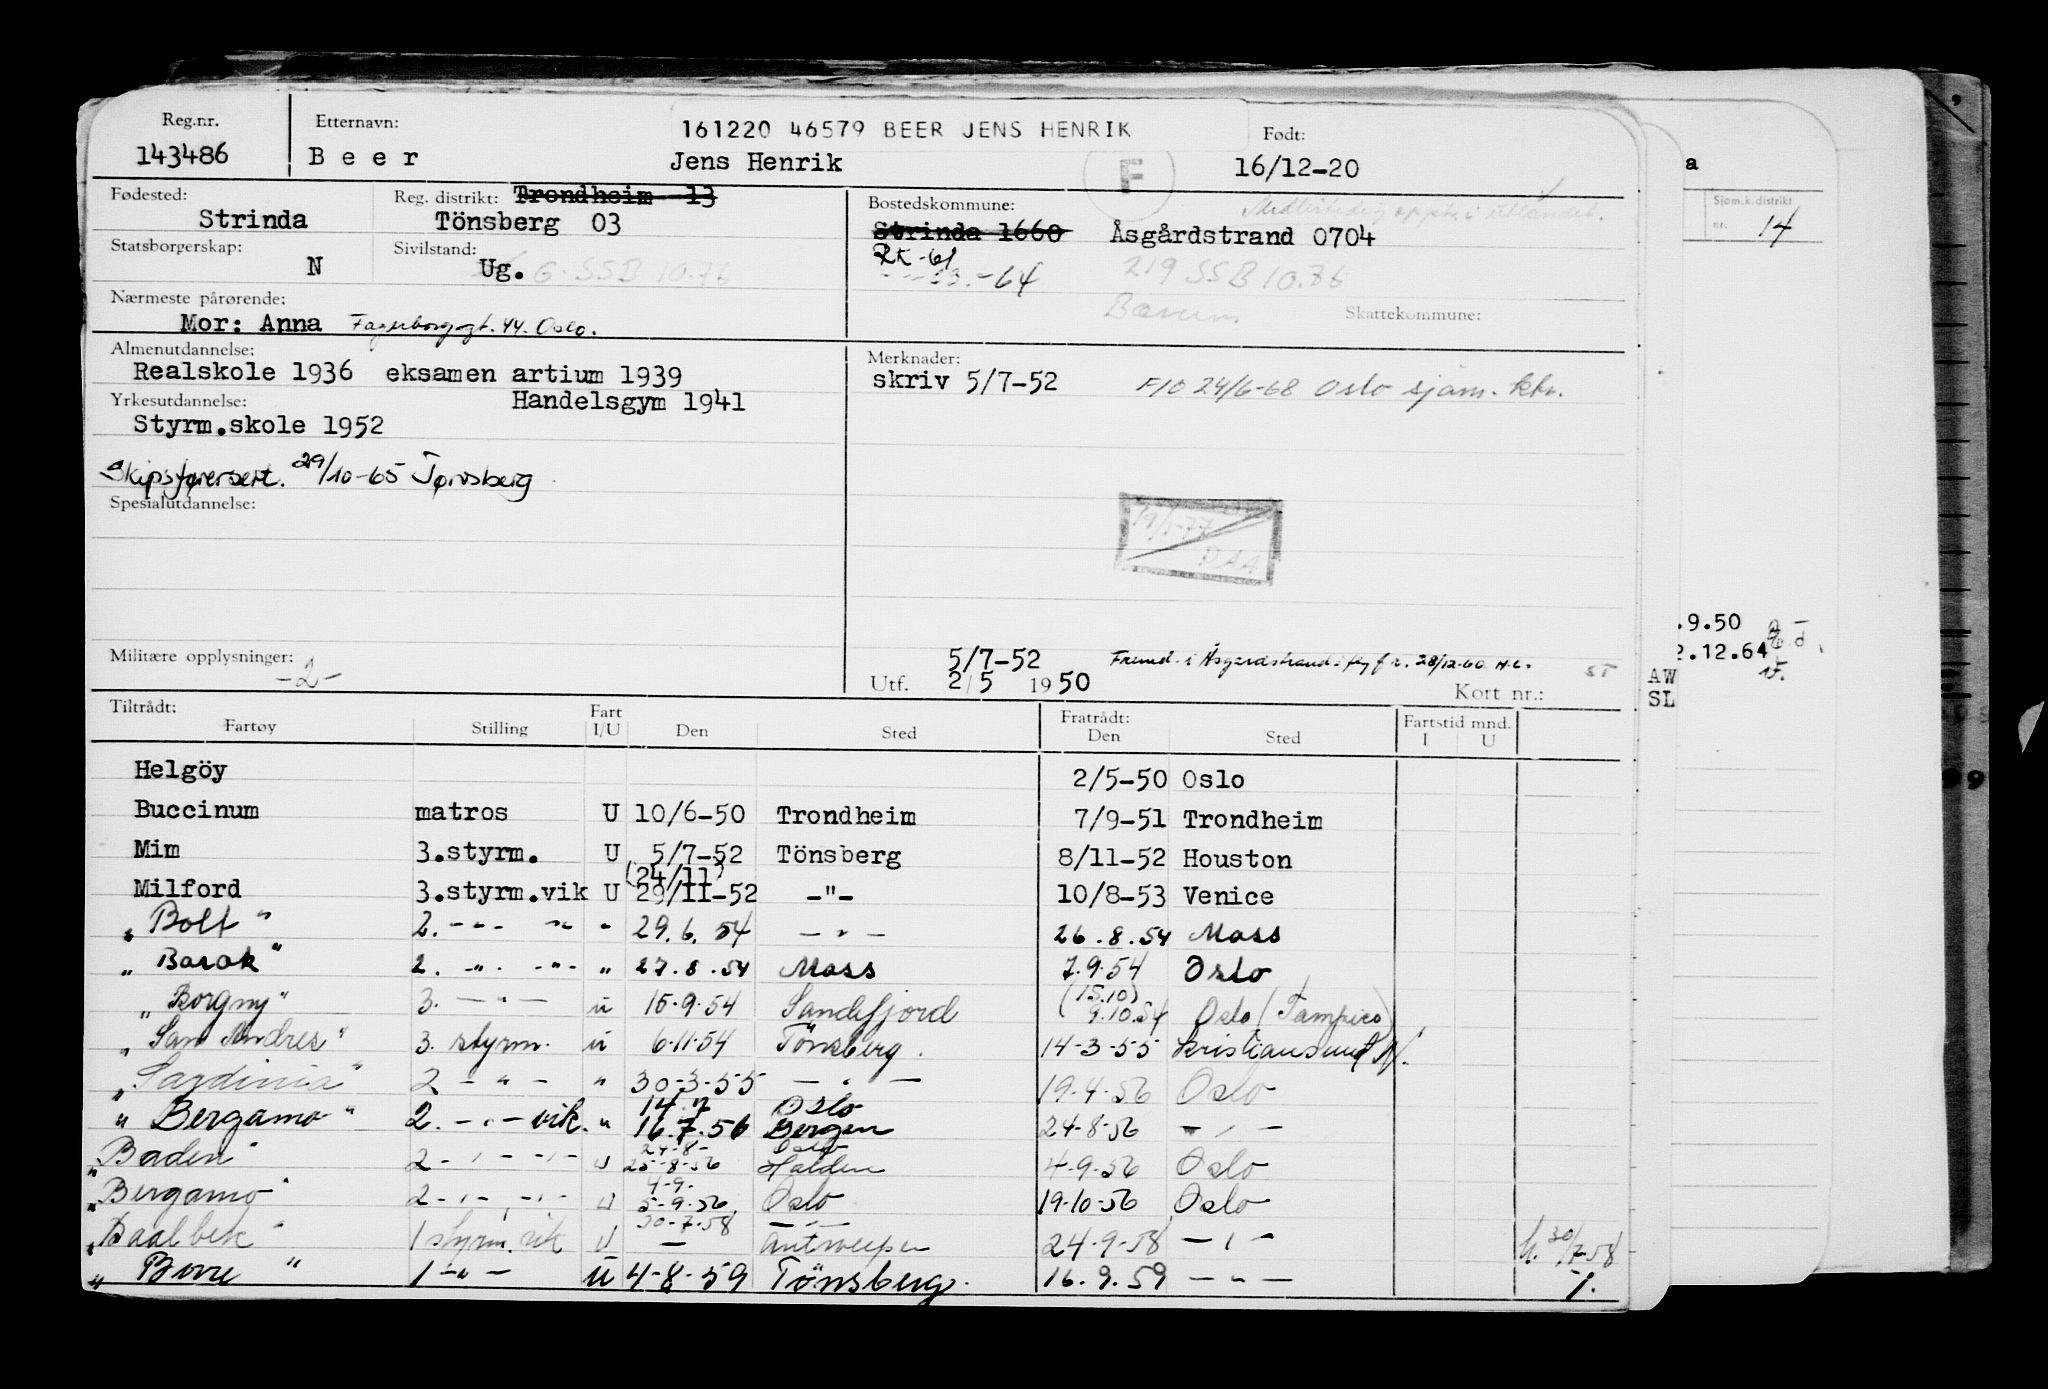 Reg.nr. Etternavn: 161220 46579 BEER JENS HENRIK Født:
143486 Beer Jens Henrik F 16/12-20
Fødested: Reg. distrikt: Trondheim 13 Bostedskommune:
Strinda Tönsberg 03 Strinda 1660 Åsgårdstrand 0704
Statsborgerskap: Sivilstand: Rk -61
N Ug. G. SSB 10.76 -64 219 SSB 10.76
Nærmeste pårørende: Bærum Skattekommune:
Mor: Anna Fagerborggt. 44. Oslo.
Almenutdannelse: Merknader:
Realskole 1936 eksamen artium 1939 skriv 5/7-52 F10 24/6-68 Oslo sjøm. ktr.
Yrkesutdannelse: Handelsgym 1941
Styrm.skole 1952
Skipsførersert. 29/10-65 Tønsberg
Spesialutdannelse:
Militære opplysninger: 5/7-52 28/12-60 H.L. ST
-2- Utf. 2/5 1950 Kort nr.:
Tiltrådt: Fart Fratrådt: Fartstid mnd.
Fartøy Stilling I/U Den Sted Den Sted I U
Helgöy 2/5-50 Oslo
Buccinum matros U 10/6-50 Trondheim 7/9-51 Trondheim
Mim 3.styrm. U 5/7-52 Tönsberg 8/11-52 Houston
(24/11)
Milford 3.styrm.vik U 29/II-52 -"- 10/8-53 Venice
"Bolt" 2. -"- -"- " 29.6.54 -"- 26.8.54 Moss
"Barok" 2. -"- -"- " 27.8.54 Moss 7.9.54 Oslo
(15.10)
"Borgny" 3. -"- u 15.9.54 Sandefjord 9.10.54 Oslo (Tampico)
"San Andres" 3. styrm. u 6.11.54 Tönsberg. 14-3-55 Kristiansund N.
"Sardinia" 2 -"- " 30-3-55 -"- 19.4.56 Oslo
14.7 Oslo
"Bergamo" 2. -"- vik. " 16.7.56 Bergen 24-8-56 -"-
24-8- Oslo
"Baden" 2 -"- -"- U 25-8-56 Halden 4-9-56 Oslo
4-9-
"Bergamo" 2 -"- -"- U 5-9-56 Oslo 19-10-56 Oslo
30-7-58 -"-
"Baalbek" 1 styrm. vik U - Antwerpen 24-9-58 -"- h. 30/7-58
"Borre" 1 -"- U 4-8-59 Tönsberg. 16.9.59 -"- 1.
a
Sjøm.k.distrikt
nr. 14
.9.50
2.12.64
AW
SL
9